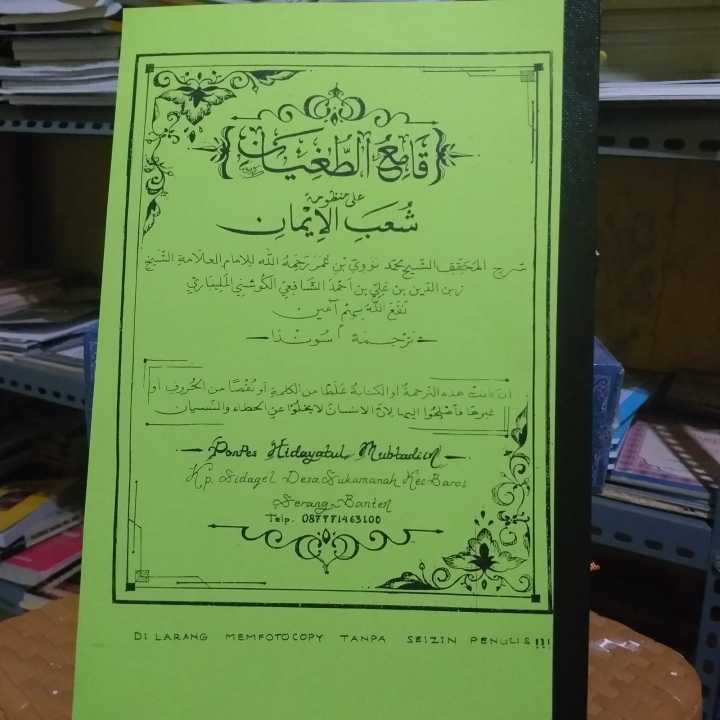 قَامِعُ الطُّغْيَانِ
على منظومة
شُعَبِ الْإِيْمَانِ
شرح المحقق الشيخ محمد نووي بن عمر رحمه الله للإمام العلامة الشيخ
زين الدين بن علي بن أحمد الشافعي الكوشني المليباري
نفع الله بهم آمين
ترجمة سوندا
ان كانت هذه الترجمة او الكتابة غلطا من الكلمة او نقصا من الحروف او
غيرها فأصلحوا اليها لان الانسان لا يخلوا عن الخطاء والنسيان
PonPes Hidayatul Mubtadiin
Kp. Sidagel Desa Sukamanah Kec Baros
Serang-Banten
Telp. 087771463100
DI LARANG MEMFOTOCOPY TANPA SEIZIN PENULIS !!!